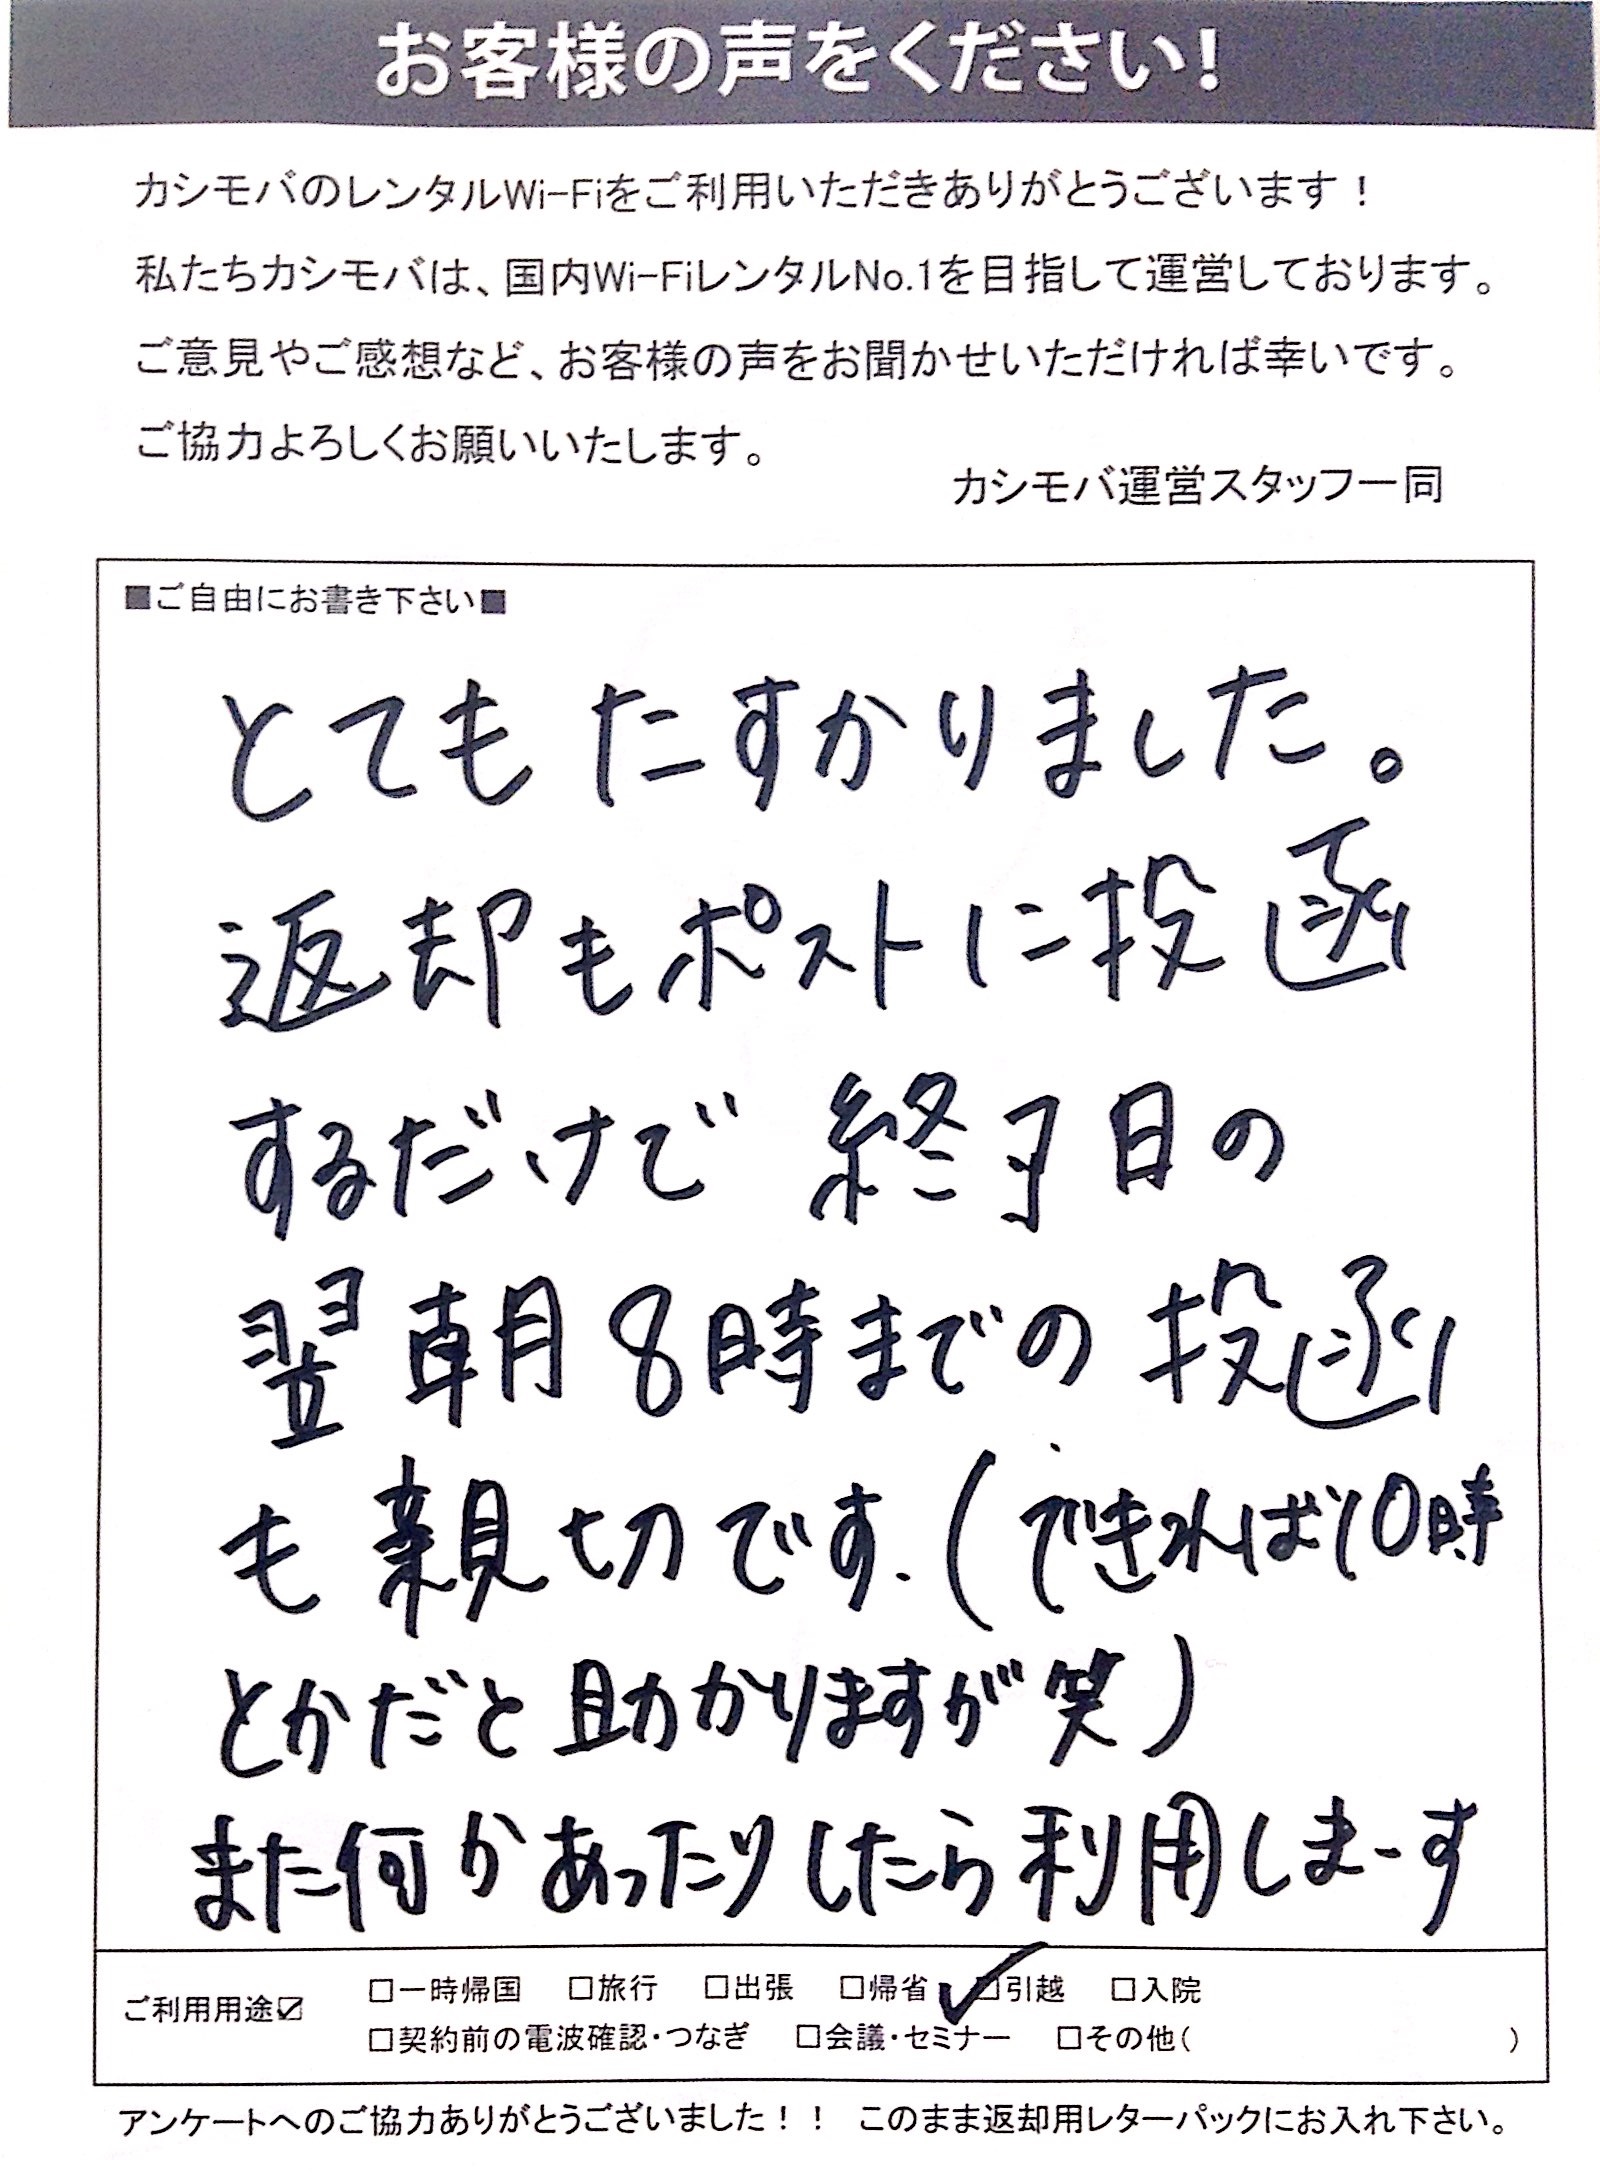 お客様の声をください!
カシモバのレンタルWi-Fiをご利用いただきありがとうございます!
私たちカシモバは、国内Wi-FiレンタルNo.1を目指して運営しております。
ご意見やご感想など、お客様の声をお聞かせいただければ幸いです。
ご協力よろしくお願いいたします。
カシモバ運営スタッフ一同
■ご自由にお書き下さい■
とてもたすかりました。
返却もポストに投函
するだけで終了日の
翌朝8時までの投函
も親切です.(できれば10時
とかだと助かりますが笑)
また何かあったりしたら利用しまーす
ご利用用途☑ □一時帰国 □旅行 □出張 □帰省 ☑引越 □入院
□契約前の電波確認・つなぎ □会議・セミナー □その他( )
アンケートへのご協力ありがとうございました!! このまま返却用レターパックにお入れ下さい。